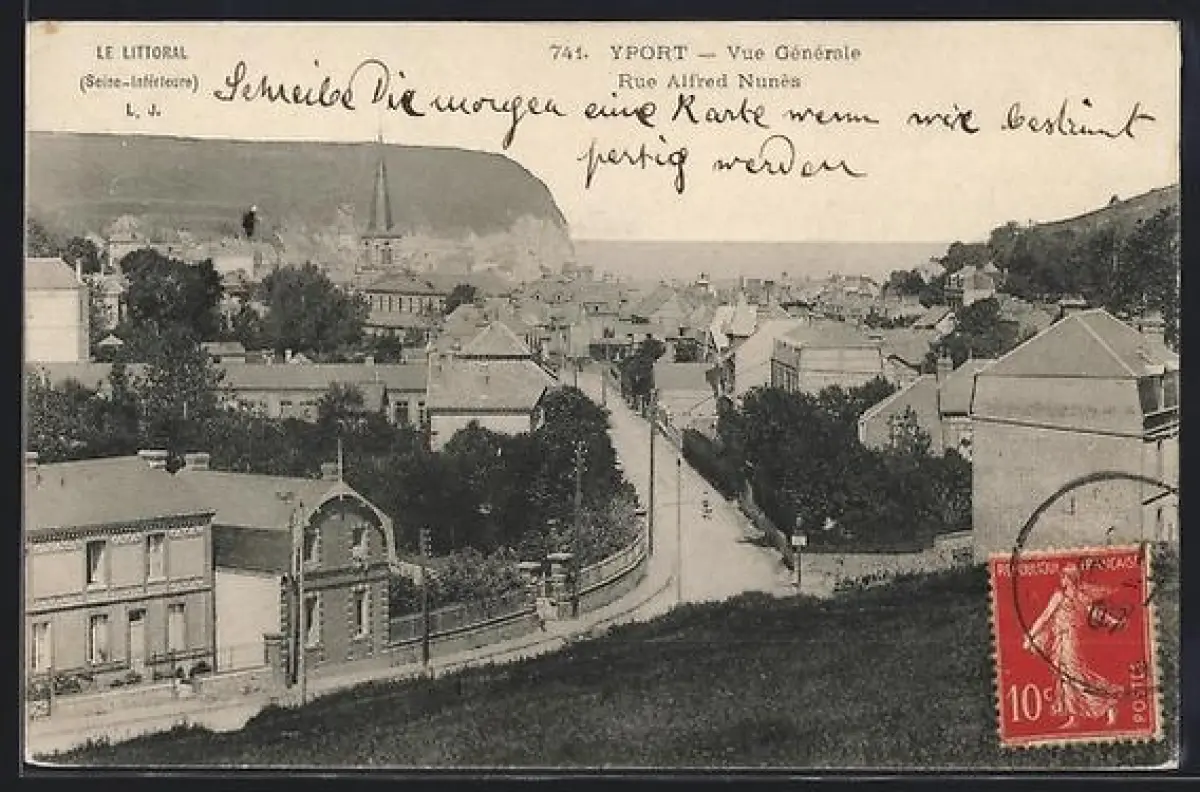 LE LITTORAL
(Seine-Inférieure)
L. J.
741. YPORT — Vue Générale
Rue Alfred Nunès
Schreibe Dir morgen eine Karte wenn wir bestimt
pertig werden
REPUBLIQUE FRANÇAISE
10c
POSTES